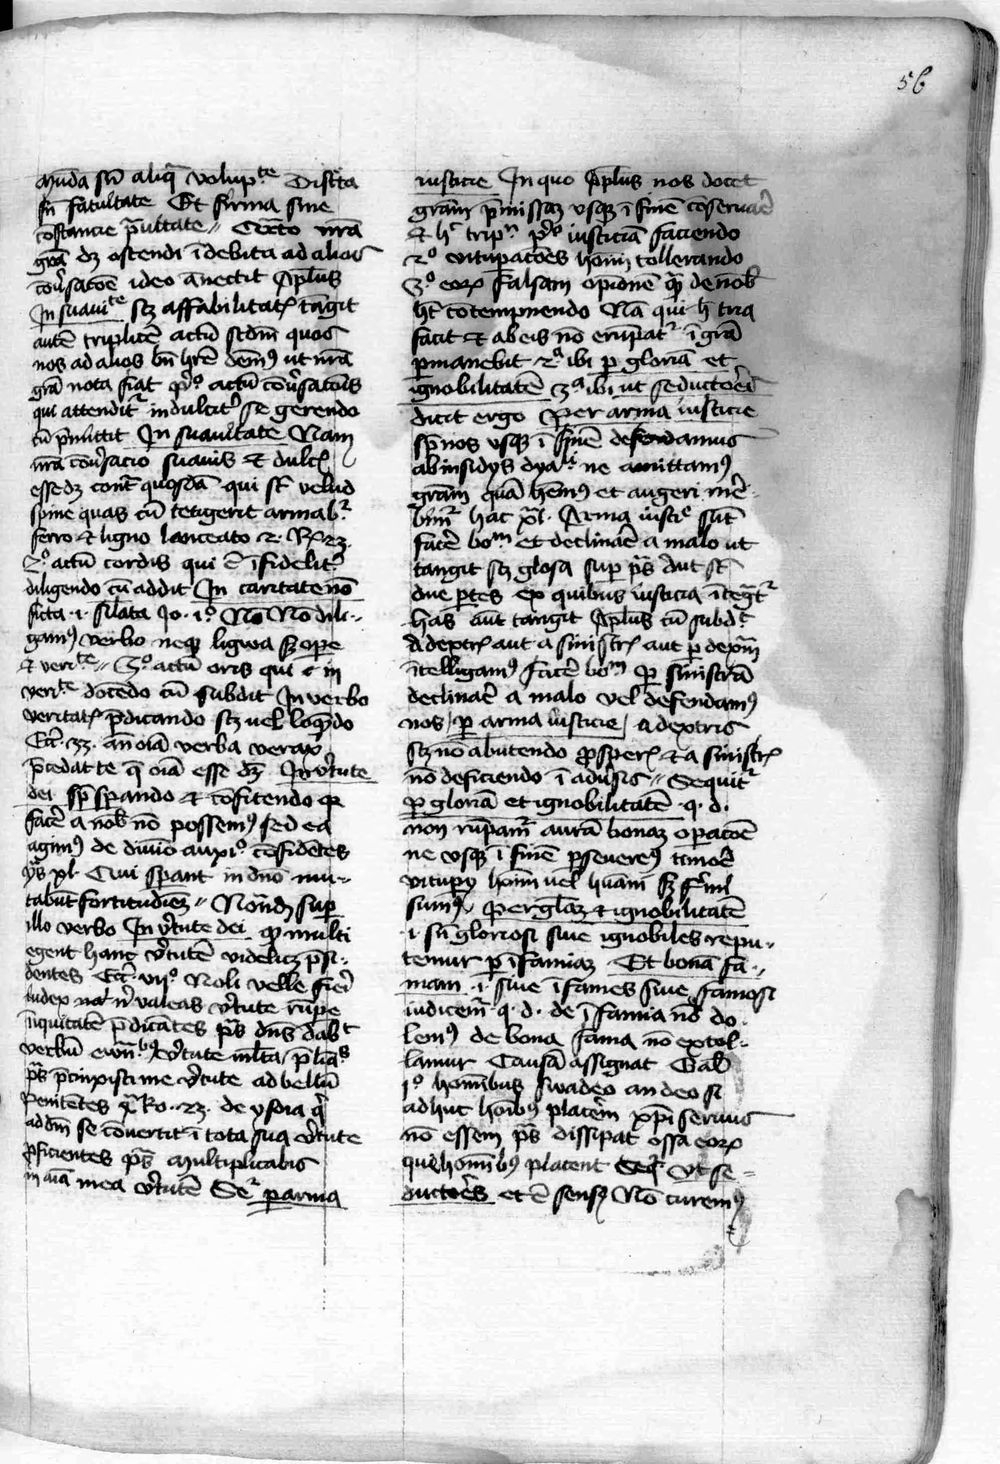 56
munda sū aliq̄ volupᵗᵉ Discreta
sn̄ facultate Et firma sine
costancie p̄uitate Cexto nr̄a
grā dz ostendi īdebita ad alios
cōv̄sacōe ideo ānectit Apl̄us
In suauiᵗᵉ scz affabilitatꝭ tāgit
autē triplicē actū scdm̄ quos
nos ad alios bn̄ hr̄e dem̄ꝰ ut nr̄a
grā nota fiat pᵒ actū cōv̄sacōis
qui attenditʳ in dulcitʳ se gerendo
cū p̄mittit In suauitate Nam
nr̄a cōv̄sacio suauis et dulcꝭ
esse dz contᵃ quosdā qui sᵗ velud
spine quas cū tetigerit armabʳ
ferro et ligno lanceato 2 R 23
2ᵒ actū cordis qui ē ī fidelitʳ
diligendo cū addit In caritate nō
ficta .i. silata Jo. iᵒ Nō dili-
gamꝰ verbo neqꝫ ligwa sz ope
et veriᵗᵉ 3ᵒ actū oris qui ē in
veriᵗᵉ docēdo cū subdit In verbo
veritatꝭ p̄dicando scz vel loq̄ndo
Ecc. 33. an oīa verba verax
p̄cedat te q̄ oīa esse dz In v̄tute
dei sp̄ sp̄ando et cōfitendo
facē a nob̄ nō possemꝰ sed ea
agimꝰ de diuino auxiᵒ cōfidētes
p̄s Qui sp̄ant in dn̄o mu-
tabūt fortitudiēz Nōndz sup
illo verbo In v̄tute dei qꝫ multi
egent hanc v̄tutē videlicz p̄si-
dentes Ecc. vijᵒ Noli velle fieri
iudex nᵃ n̄ valeas v̄tute rūpe
īiquitatē p̄dicātes p̄s dn̄s dabᵗ
verbū ewāᵇꝰ v̄tute ml̄ta
p̄s p̄cinxisti me v̄tute ad bellū
Penitētes 4 Ro. 23. de ysdia q̄
ad dm̄ se cōuertit ī tota sua v̄tute
p̄ficientes p̄s Multiplicabis
in aīa mea v̄tutē Seʳ p arma
iusticie In quo Apl̄us nos docet
grām p̄missaz vsqꝫ ī finē cōseruaē
et hᶜ tripʳ pᵒ iusticiā faciendo
2ᵒ vitupacōes homī tollerando
3ᵒ eoꝝ falsam opinionē q̄ de nob̄
hn̄t cōtempnendo Nā qui h̄ tria
facit et ab eis nō erūpatʳ ī grā
p̄manebit 2ᵃ ibi p gloriā et
ignobilitatē 3ᵃ ibi ut seductor̄
dicit ergo Per arma iusticie
sp̄ nos vsqꝫ ī finē defendamus
ab insidijs dyaˡⁱ ne amittamꝰ
grām quā hēmꝰ et augeri
hac Arma iustiᵉ sūt
facē boᵐ et declinaē a malo ut
tangit scz glosa sup p̄s
due p̄tes ex quibus iusticia ītegᵃtʳ
has aūt tangit Apl̄us cū subdᵗ
A dextrꝭ aut a sinistrꝭ aut p dexᵃm
ītelligamꝰ facē boᵐ p sinistrā
declinaē a malo vel defendamꝰ
nos p arma iusticie a dextris
scz nō abutendo ꝓsperꝭ et a sinistrꝭ
nō deficiendo ī adūsis Sequitʳ
p gloriā et ignobilitatē .q.d.
non rūpamʳ aurā bonaz opacōe
ne vsqꝫ ī finē p̄seueremꝰ timore
vitupij homī vel
sumꝰ Per gl̄az et ignobilitatē
.i. sū gloriosi siue ignobiles repu-
temur p īfamiaz Et bonā fa-
mam .i. siue īfames siue famosi
iudicemʳ .q.d. de īfamia nō do-
lemꝰ de bona fama nō extol-
lamur Causā assignat Gal̄
iᵒ hominibus swadeo an deo si
adhuc hoībꝰ placem̄ xp̄i seruus
nō essem p̄s dissipat ossa eoꝝ
qui homībꝰ placent Seqʳ Vt se-
ductores et ē sensꝰ Nō curemꝰ